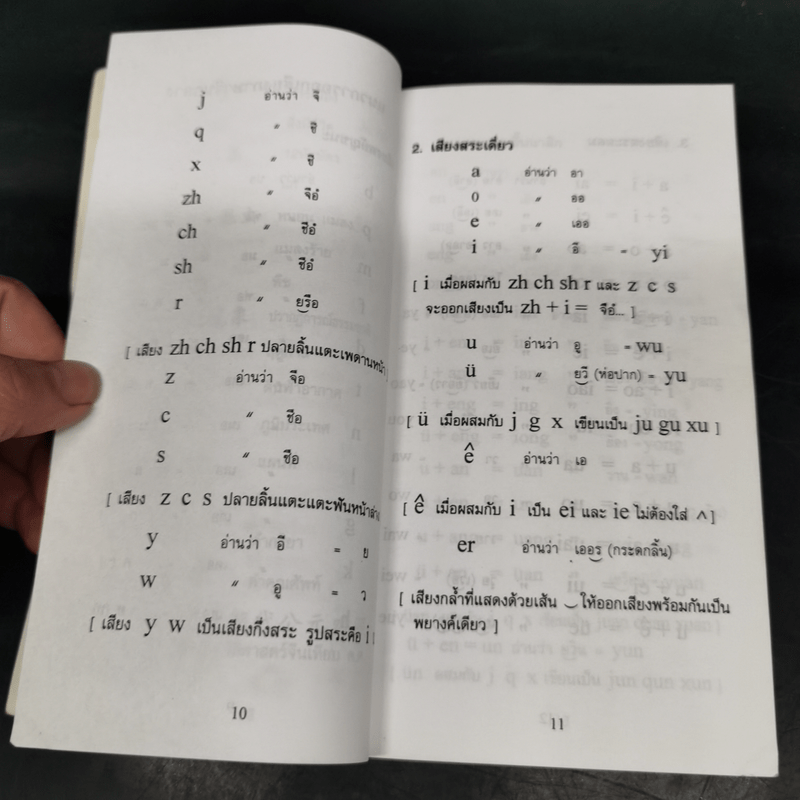 j อ่านว่า จี
q " ชี
x " ซี
zh " จือ๋
ch " ชือ๋
sh " ซือ๋
r " ยรือ
[ เสียง zh ch sh r ปลายลิ้นแตะเพดานหน้า ]
z อ่านว่า จือ
c " ชือ
s " ซือ
[ เสียง z c s ปลายลิ้นแตะแตะฟันหน้าล่าง
y อ่านว่า อี = ย
w " อู = ว
[ เสียง y w เป็นเสียงกึ่งสระ รูปสระคือ i
10
2. เสียงสระเดี่ยว
a อ่านว่า อา
o " ออ
e " เออ
i " อี = yi
[ i เมื่อผสมกับ zh ch sh r และ z c s
จะออกเสียงเป็น zh + i = จือ๋... ]
u อ่านว่า อู = wu
ü " ยวี (ห่อปาก) = yu
[ ü เมื่อผสมกับ j g x เขียนเป็น ju gu xu ]
ê อ่านว่า เอ
[ ê เมื่อผสมกับ i เป็น ei และ ie ไม่ต้องใส่ ^ ]
er อ่านว่า เออร (กระดกลิ้น)
[ เสียงกล้ำที่แสดงด้วยเส้น ‿ ให้ออกเสียงพร้อมกันเป็น
พยางค์เดียว ]
11